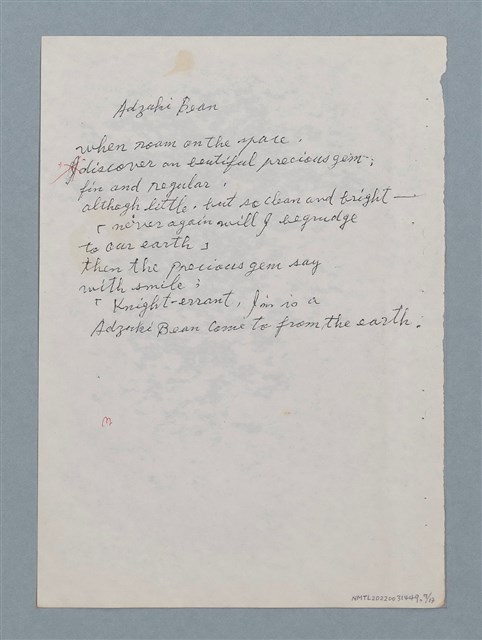 Adzuki Bean
when roam on the space.
I discover an beautiful precious gem;
fin and regular,
althogh little. but so clean and bright—
「never again will I begrudge
to our earth」
then the precious gem say
with smile;
「Knight-errant, I'm is a
Adzuki Bean come to from the earth.
NMTL20220031449,